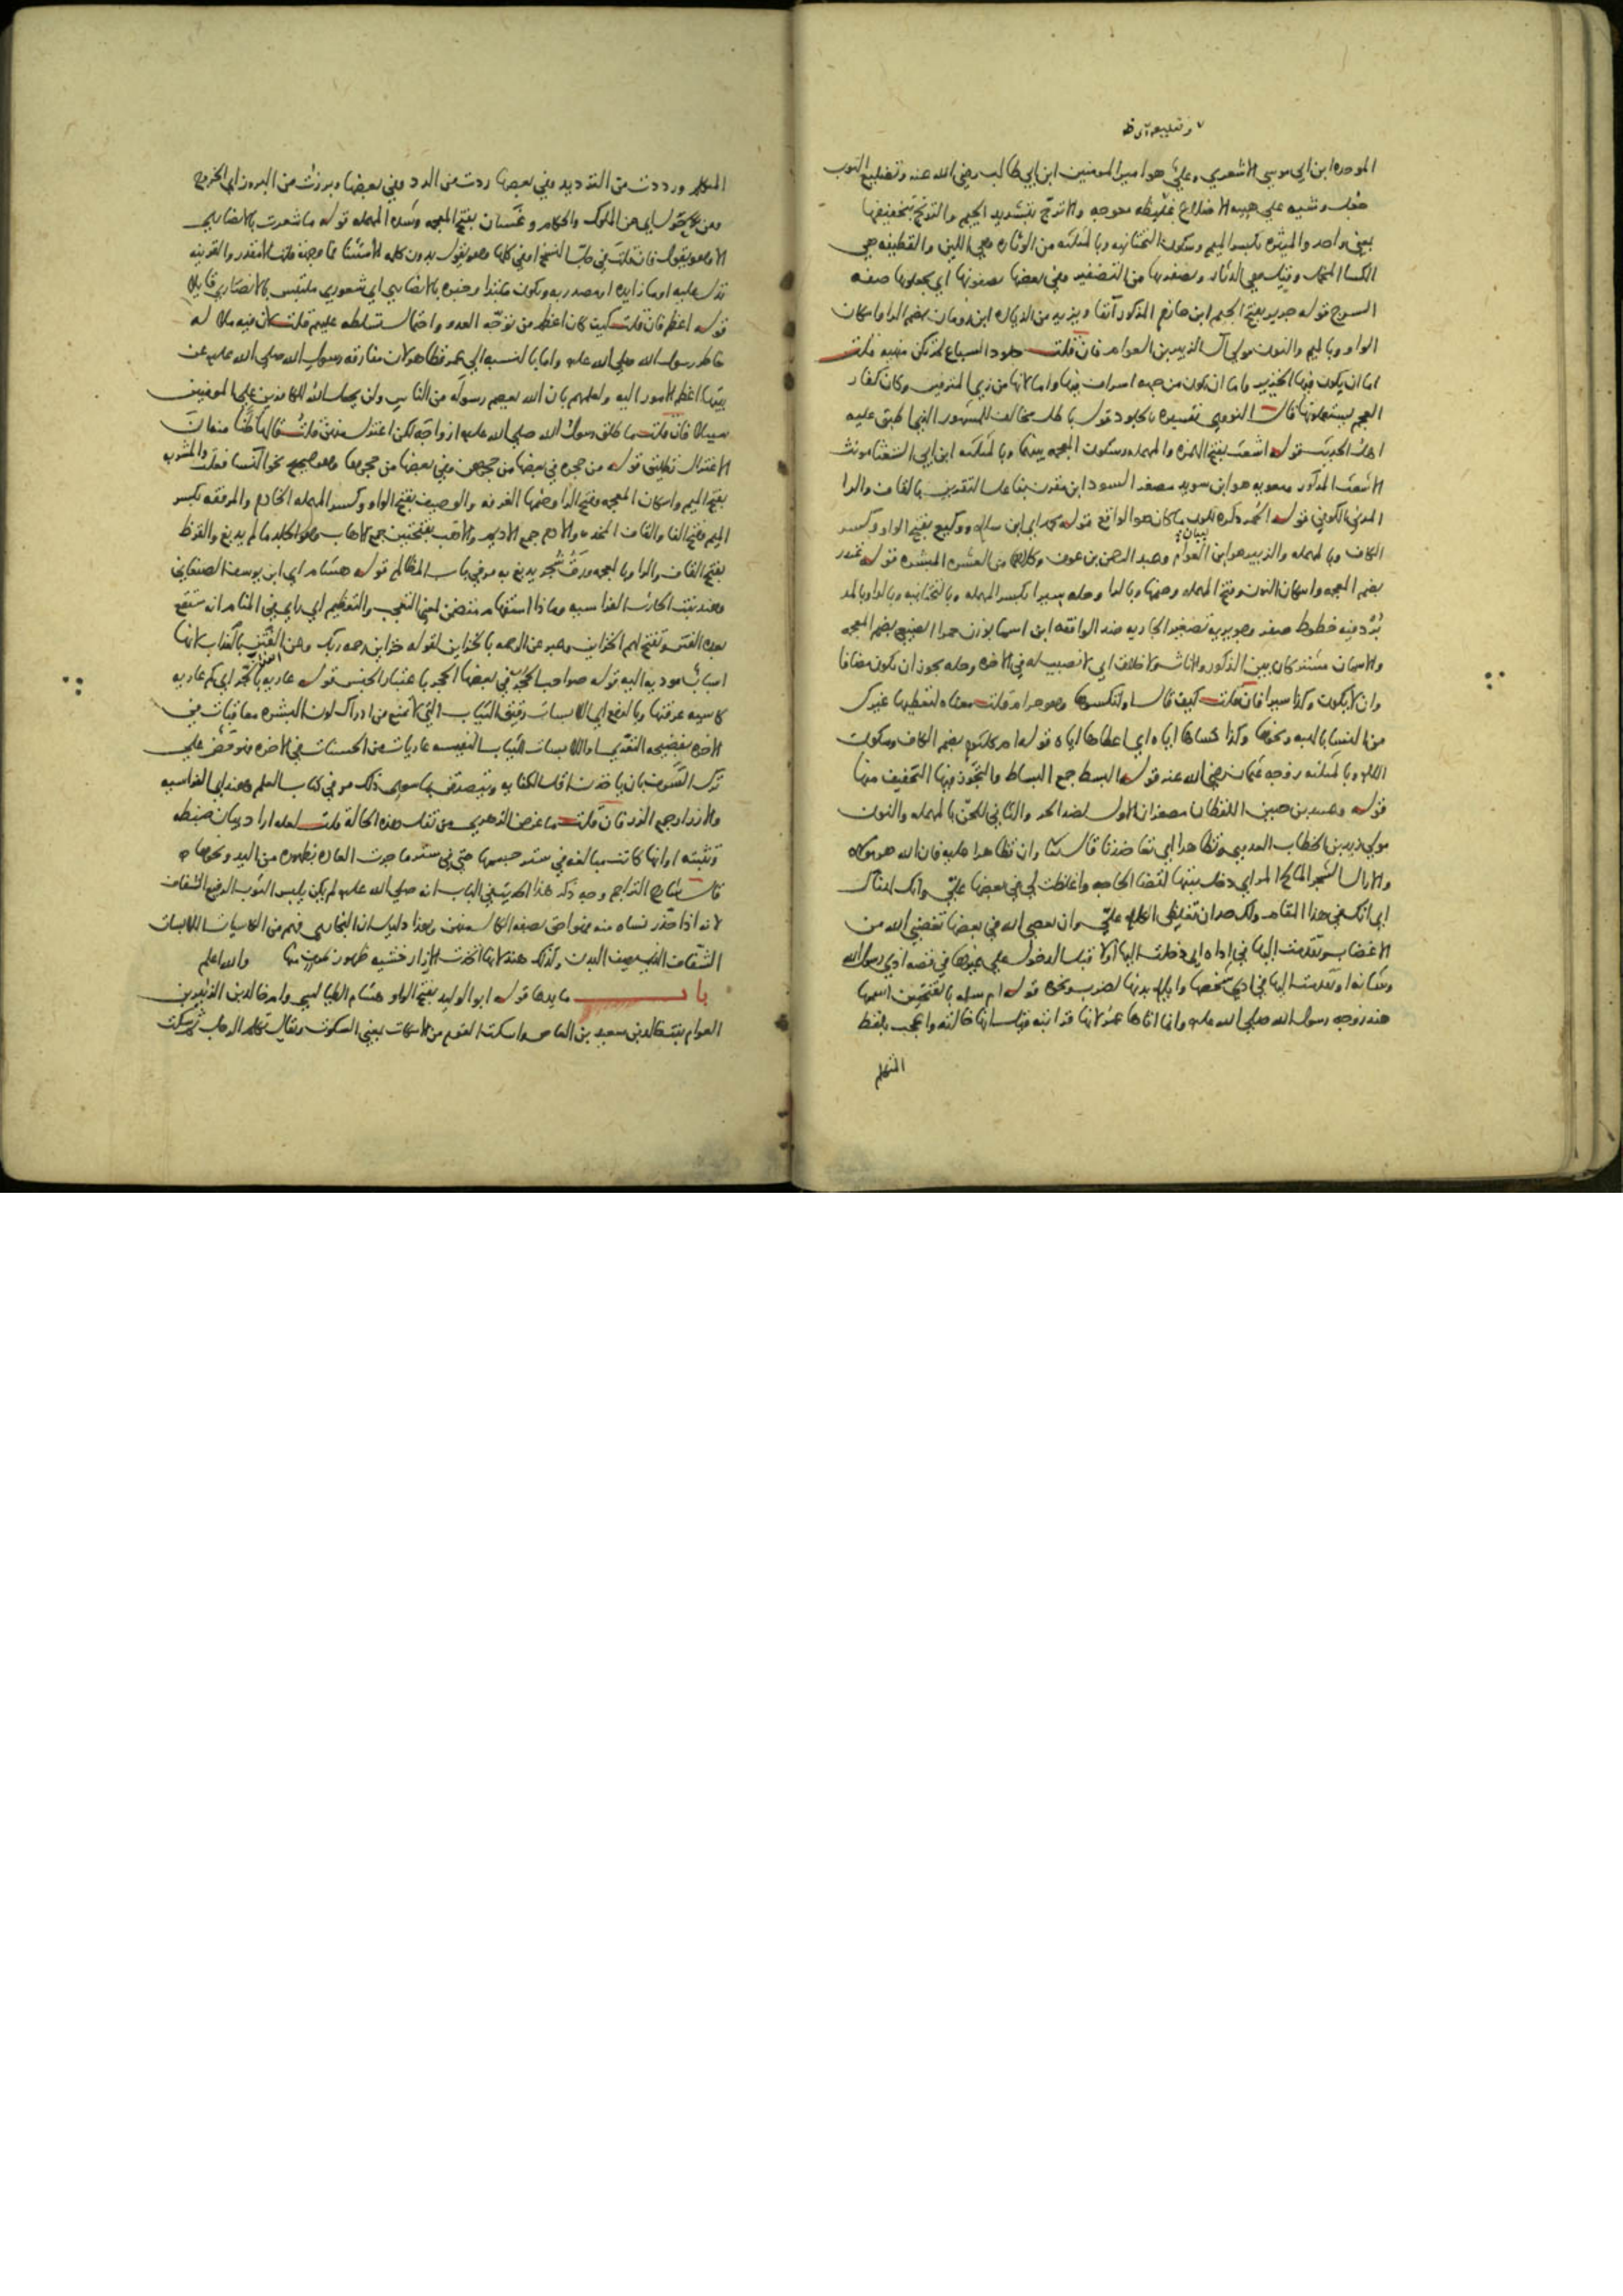 وتضليع
الموحده ابن ابي موسي الاشعري وعلي هو امير المومنين ابن ابي طالب رضي الله عنه وتضليع الثوب
جعل وشيه علي هيئة الاضلاع غليظه معوجه والاترج بتشديد الجيم والترنج بتخفيفها
بمعني واحد والميثره بكسر الميم وسكون التحتانيه وبالمثلثه من الوثاره وهي اللين والقطيفه هي
الكسا المخمل وقيل هي الدثار ويصفرنها من التصفير وفي بعضها يصفونها اي يجعلونها صفه
السرج قوله جرير بفتح الجيم ابن حازم المذكور آنفا ويزيد من الزياده ابن رومان بضم الرا واسكان
الواو وبالميم والنون مولي آل الزبير بن العوام فان قلت جلود السباع لم تكن منهيه قلت
اما ان يكون فيها الخنزير واما ان يكون من جهه اسراف فيها واما لانها من زي المترفين وكان كفار
العجم يستعملونها قال النووي تفسيره بالجلود قول باطل مخالف للمشهور الذي اطبق عليه
اهل الحديث قوله اشعث بفتح الهمزه والمهمله وسكون المعجمه بينهما وبالمثلثه ابن ابي الشعثا مونث
الاشعث المذكور ومعويه هو ابن سويد مصغر السود ابن مقرن بفاعل التقرين بالقاف والرا
المزني الكوفي قوله الحمر ذكره لبيان ما كان هو الواقع قوله محمد اي ابن سلام ووكيع بفتح الواو وكسر
الكاف وبالمهمله والزبير هو ابن العوام وعبد الرحمن بن عوف وكلاهما من العشره المبشره قوله غندر
بضم المعجمه واسكان النون وفتح المهمله وضمها وبالرا وحله سيرا بكسر المهمله وبالتحتانيه وبالرا وبالمد
برد فيه خطوط صفر وجويريه تصغير الجاريه ضد الواقفه ابن اسما بوزن حمرا الضبعي بضم المعجمه
والاسمان مشتركان بين الذكور والاناث ولاخلاق اي لا نصيب له في الاخره وحله يجوز ان يكون مضافا
وان لا يكون وكذا سيرا فان قلت كيف قال او لتكسوها وهو حرام قلت معناه لتعطيها غيرك
من النسا بالهبه ونحوها وكذا كساها اياه اي اعطاها اياه قوله ام كلثوم بضم الكاف وسكون
اللام وبالمثلثه زوجه عثمان رضي الله عنه قوله البسط جمع البساط والتجوز فيها التخفيف منها
قوله وعبيد بن حنين اللفظان مصغران الاول لضد الحر والثاني للحن بالمهمله والنون
مولي زيد بن الخطاب العدوي وتظاهرا اي تعاضدتا قال تعالي وان تظاهرا عليه فان الله هو مولاه
والاراك الشجر المالح المر اي دخل بينها لقضا الحاجه واغلظت لي في بعضها علي وانك لهناك
اي انك في هذا المقام ولك حد ان تغلظي الكلام علي وان تعصي الله في بعضها تغضبي الله من
الاغضاب وتقدمت اليها في اذاه اي دخلت اليها اولا قبل الدخول علي غيرها في قصه اذي رسول الله
وشانه او تقدمت اليها في اذي شخصها وايلام بدنها بالضرب ونحوه قوله ام سلمه بالفتحتين اسمها
هند زوجه رسول الله صلي الله عليه وانما اتاها عمر لانها قرابته قيل انها خالته واعجب بلفظ
المتكلم
المتكلم ورددت من الترديد وفي بعضها ردت من الرد وفي بعضها وبرزت من البروز اي الخروج
ومن حول اي من الملوك والحكام وغسان بفتح المعجمه وشده المهمله قوله ما شعرت بالانصاري
الا وهو يقول فان قلت في جل النسخ او في كلها وهو يقول بدون كلمه الاستثنا فما وجهه قلت الا مقدر والقرينه
تدل عليه او ما زايده او مصدريه ويكون مبتدا وخبره بالانصاري اي شعوري ملتبس بالانصاري قايلا
قوله اعظم فان قلت كيف كان اعظم من توجه العدو واحتمال تسلطه عليهم قلت لان فيه ملال
خاطر رسول الله صلي الله عليه واما بالنسبه الي عمر فظاهر لان مفارقه رسول الله صلي الله عليه عن
بنته اعظم الامور اليه ولعلمهم بان الله يعصم رسوله من الناس ولن يجعل الله للكافرين علي المومنين
سبيلا فان قلت ما طلق رسول الله صلي الله عليه ازواجه لكن اعتزل منهن قلت قالها ظنا منه ان
الاعتزال تطليق قوله من حجره في بعضها من حجرهن وفي بعضها من حجرها وهو صحيح نحو النسا فعلت والمشربه
بفتح الميم واسكان المعجمه وفتح الرا وضمها الغرفه والوصيف بفتح الواو وكسر المهمله الخادم والمرفقه بكسر
الميم وفتح الفا والقاف المخده والادم جمع الاديم والاهب بفتحتين جمع الاهاب وهو الجلد ما لم يدبغ والقرظ
بفتح القاف والرا وبالمعجمه ورق شجر يدبغ به مر في باب المظالم قوله هشام اي ابن يوسف الصنعاني
وهند بنت الحارث الفراسيه وماذا استفهام متضمن لمعني التعجب والتعظيم اي راي في المنام انه ستقع
بعده الفتن وتفتح لهم الخزاين وعبر عن الرحمه بالخزاين لقوله خزاين رحمه ربك وعن الفتن بالعذاب لانها
اسباب موديه اليه قوله صواحب الحجرات في بعضها الحجر باعتبار الجنس قوله عاريه بالجر اي كم عاريه
كاسيه عرفتها وبالرفع اي اللابسات رقيق الثياب التي لا تمنع من ادراك لون البشره معاقبات في
الاخره بفضيحه التعري او اللابسات الثياب النفيسه عاريات من الحسنات في الاخره فهو حض علي
ترك السرف بان ياخذن اقل الكفايه ويتصدقن بما سوي ذلك مر في كتاب العلم وهند اي الفراسيه
والازرار جمع الزر فان قلت ما غرض الزهري من نقل هذه الحاله قلت لعله اراد بيان ضبطه
وتثبته او انها كانت مبالغه في ستر جسمها حتي في ستر ما جرت العاده بظهوره من اليد ونحوها
قال شارح التراجم وجه ذكر هذا الحديث في الباب انه صلي الله عليه لم يكن يلبس الثوب الرفيع الشفاف
لانه اذا حذر نساه منه فهو احق بصفه الكمال منهن وهذا دليل ان البخاري فهم من الكاسيات اللابسات
الشفاف الذي يصف البدن وكذلك هند لانها اتخذت الازرار خشيه ظهور منها والله اعلم
باب ما يدعا قوله ابو الوليد بفتح الواو هشام الطيالسي وام خالد بن الزبير بن
العوام بنت خالد بن سعيد بن العاص واسكت القوم من الاسكات بمعني السكوت ويقال تكلم الرجل ثم سكت